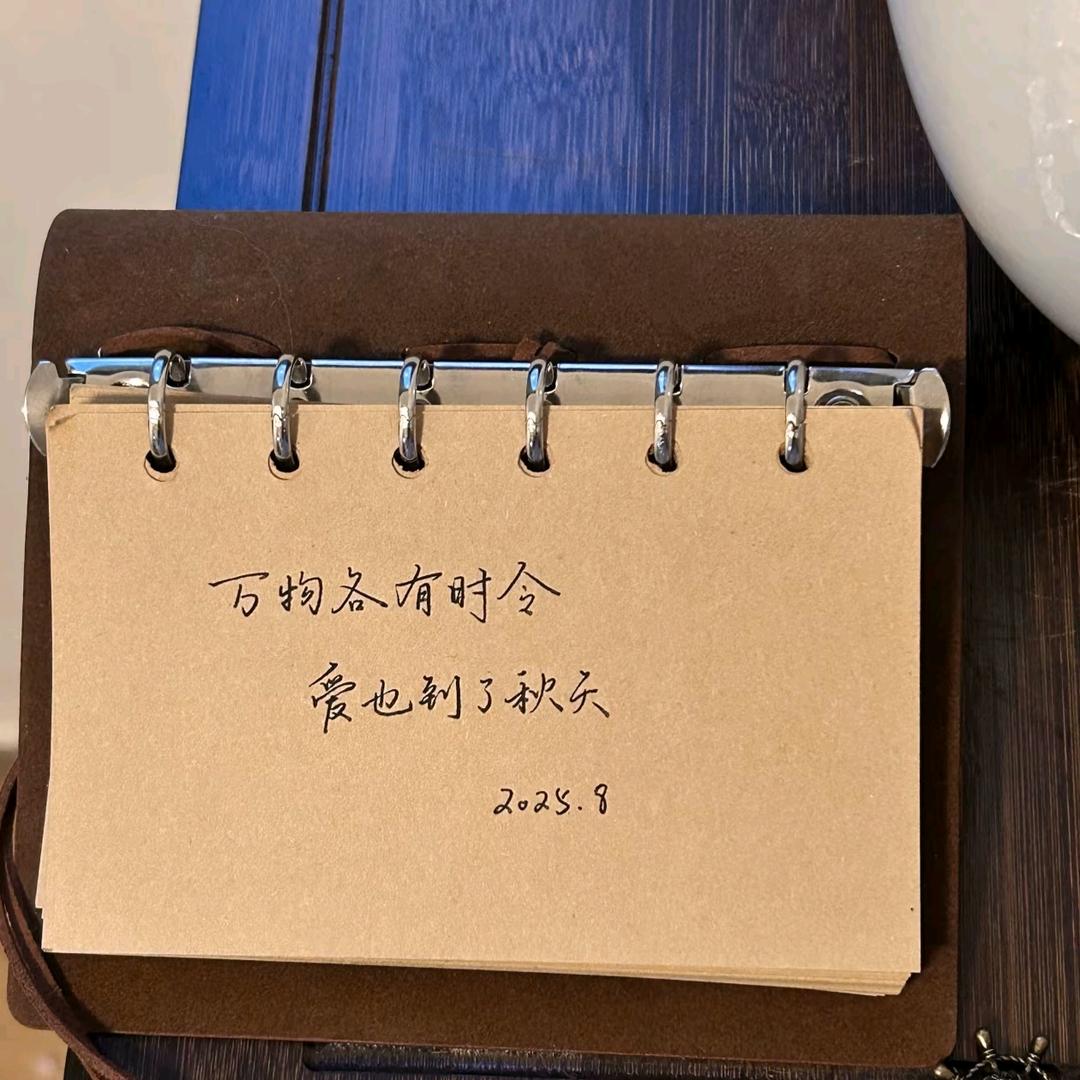 万物各有时令
爱也到了秋天
2025.8